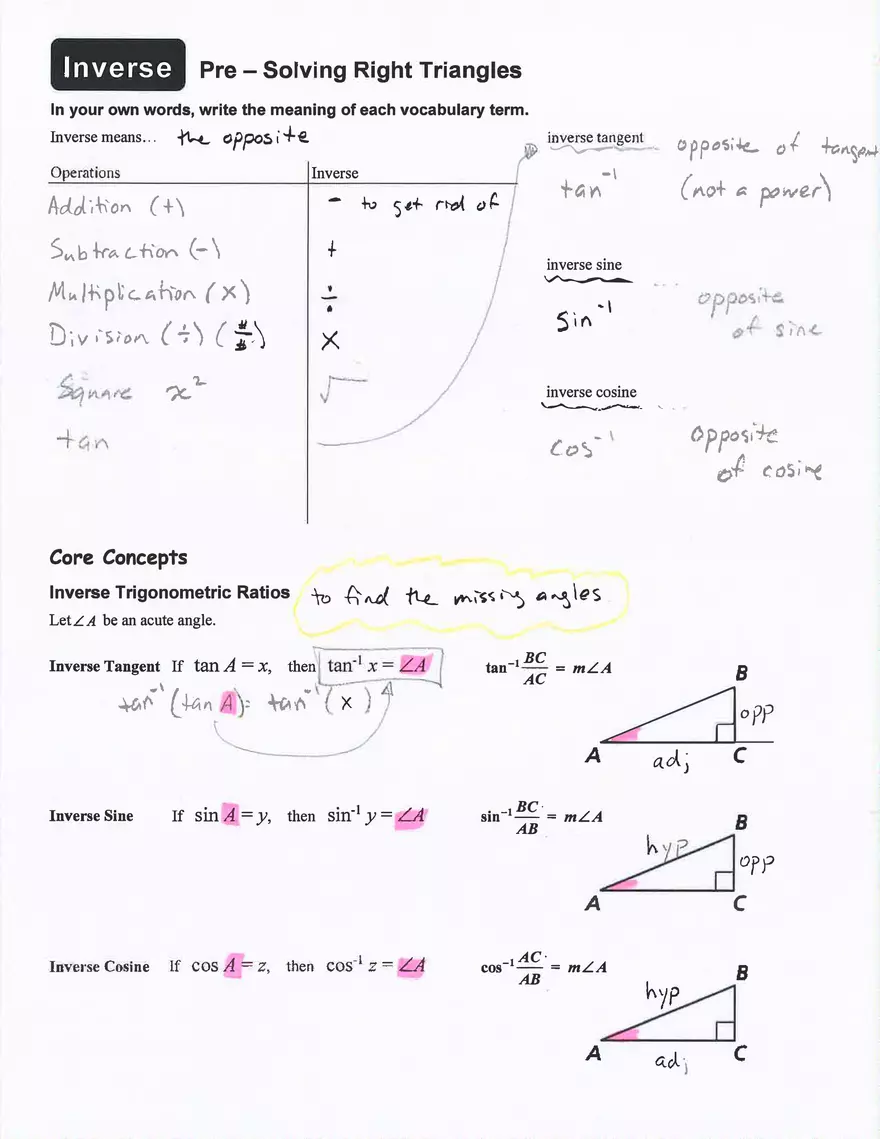 Inverse Pre – Solving Right Triangles
In your own words, write the meaning of each vocabulary term.
Inverse means… the opposite
Operations Inverse
Addition (+) - to get rid of
Subtraction (-) +
Multiplication (x) ÷
Division (÷) (#/#) X
Square x² √
tan
inverse tangent opposite of tangent
tan⁻¹ (not a power)
inverse sine
sin⁻¹ opposite
of sine
inverse cosine
cos⁻¹ opposite
of cosine
Core Concepts
Inverse Trigonometric Ratios to find the missing angles
Let ∠A be an acute angle.
Inverse Tangent If tan A = x, then tan⁻¹ x = ∠A tan⁻¹ BC/AC = m∠A
tan⁻¹(tan A) = tan⁻¹(x)
B
opp
A adj C
Inverse Sine If sin A = y, then sin⁻¹ y = ∠A sin⁻¹ BC/AB = m∠A
B
hyp opp
A C
Inverse Cosine If cos A = z, then cos⁻¹ z = ∠A cos⁻¹ AC/AB = m∠A
B
hyp
A adj C